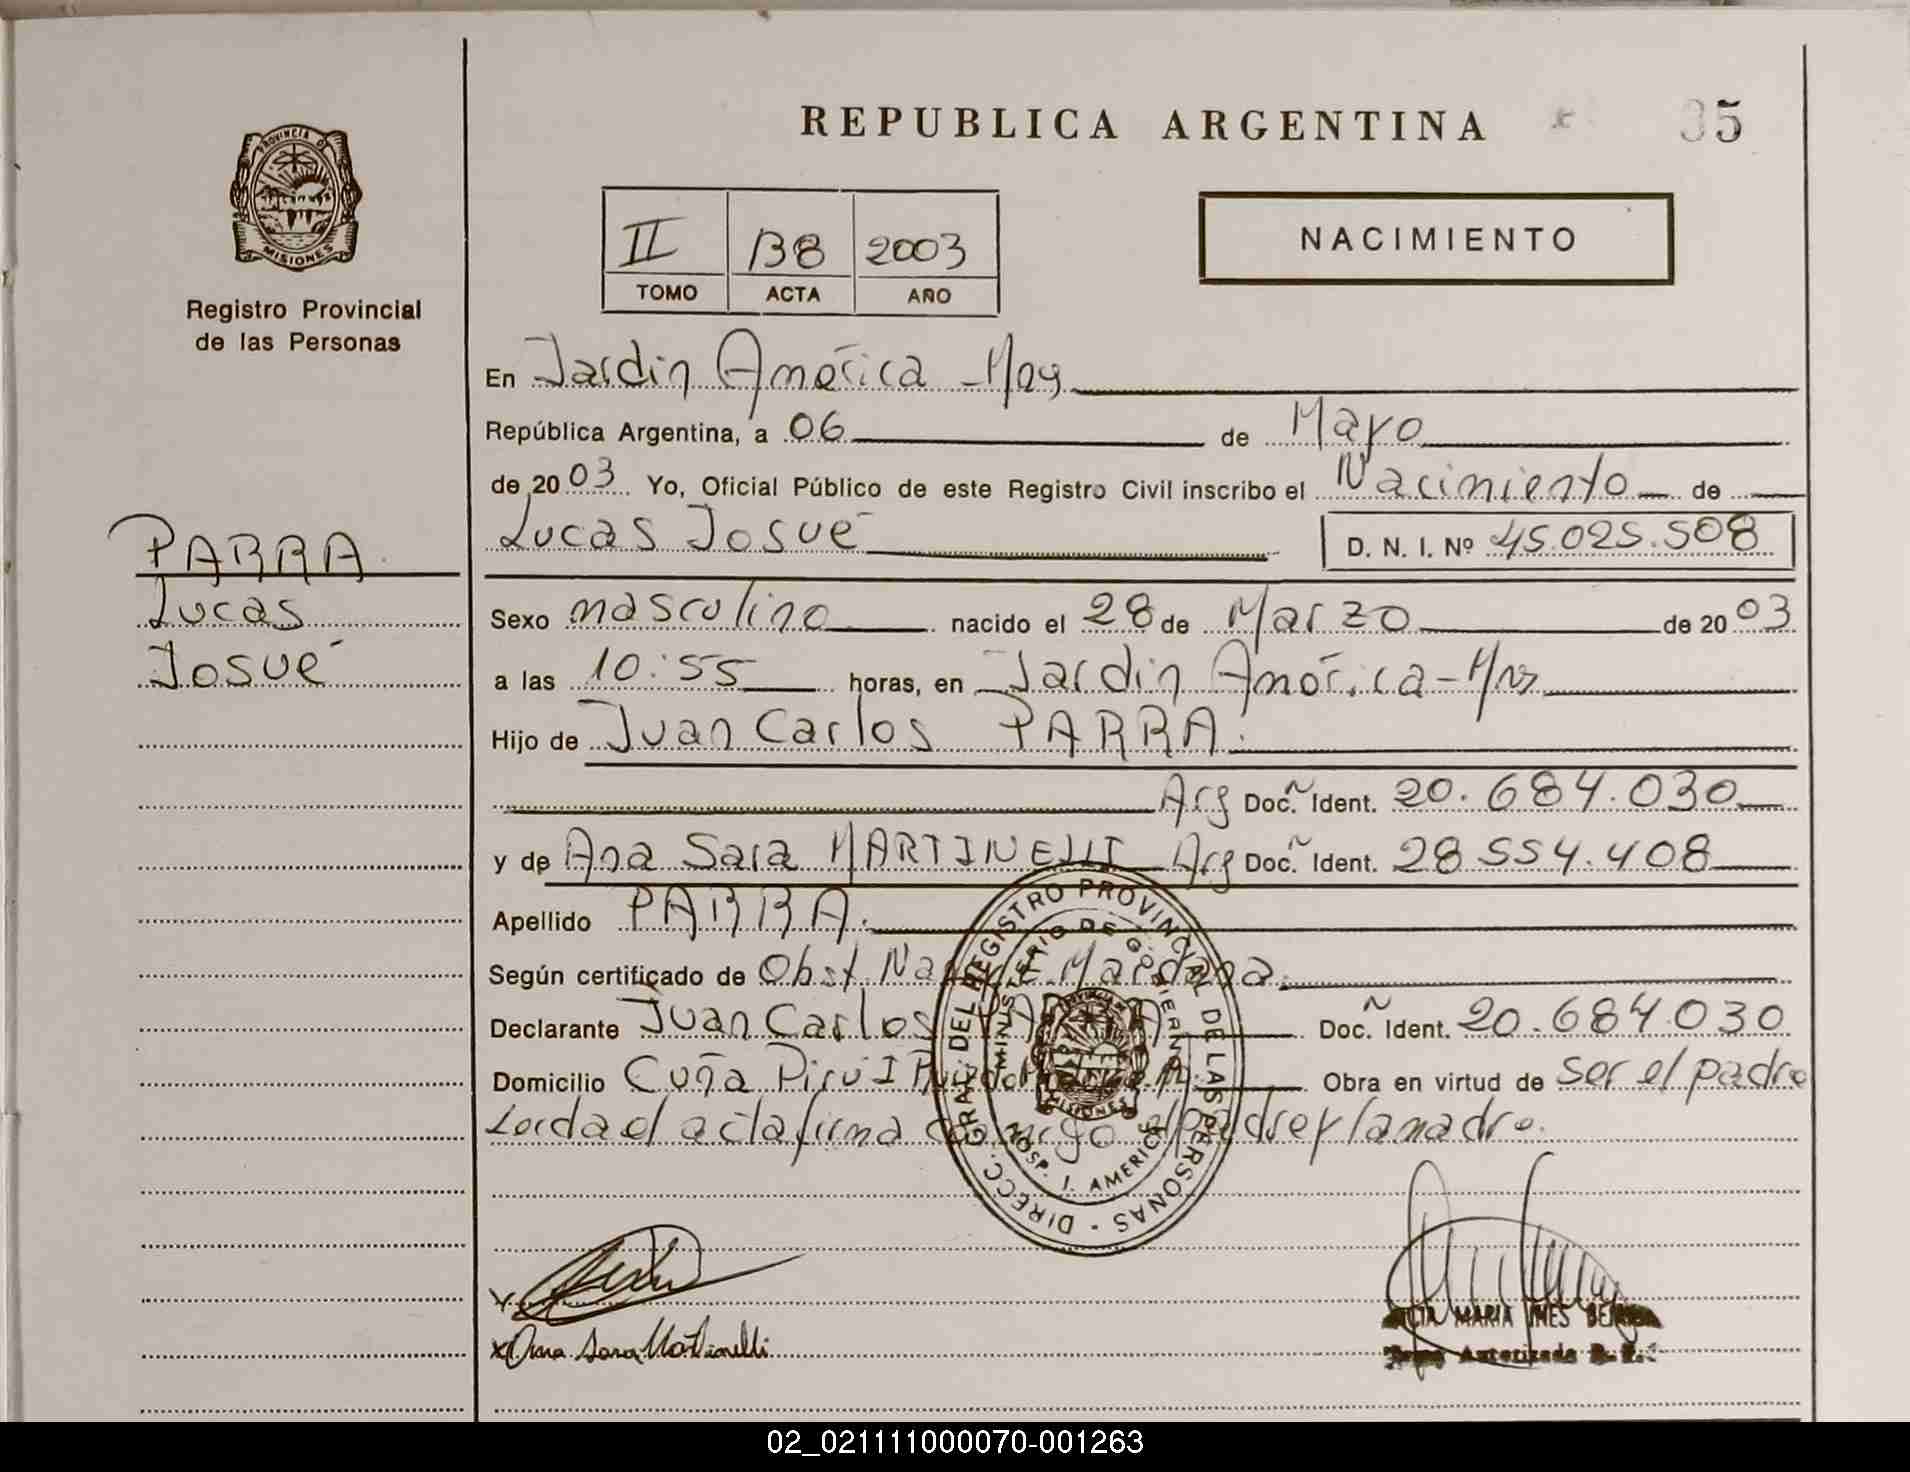 REPUBLICA ARGENTINA
35
PROVINCIA DE
MISIONES
Registro Provincial
de las Personas
II 138 2003
TOMO ACTA AÑO
NACIMIENTO
En Jardin América - Mnes
República Argentina, a 06 de Mayo
de 20 03 Yo, Oficial Público de este Registro Civil inscribo el Nacimiento de
Lucas Josué D. N. I. Nº 45.025.508
PARRA
Lucas
Josué
Sexo masculino nacido el 28 de Marzo de 20 03
a las 10:55 horas, en Jardin América - Mnes
Hijo de Juan Carlos PARRA.
Arg Doc. Ident. 20.684.030
y de Ana Sara MARTINELLI Arg Doc. Ident. 28.554.408
Apellido PARRA.
Según certificado de Obst. Mardana.
Declarante Juan Carlos PARRA Doc. Ident. 20.684.030
Domicilio Cuña Pirú I Obra en virtud de ser el padre
Leida el acta firma conmigo el padre y la madre.
DIRECC. GRAL. DEL REGISTRO PROVINCIAL DE LAS PERSONAS
MINISTERIO DE GOBIERNO
MISIONES
HOSP. J. AMERICA
x
x Ana Sara Martinelli
MARIA INES
Autorizada
02_021111000070-001263